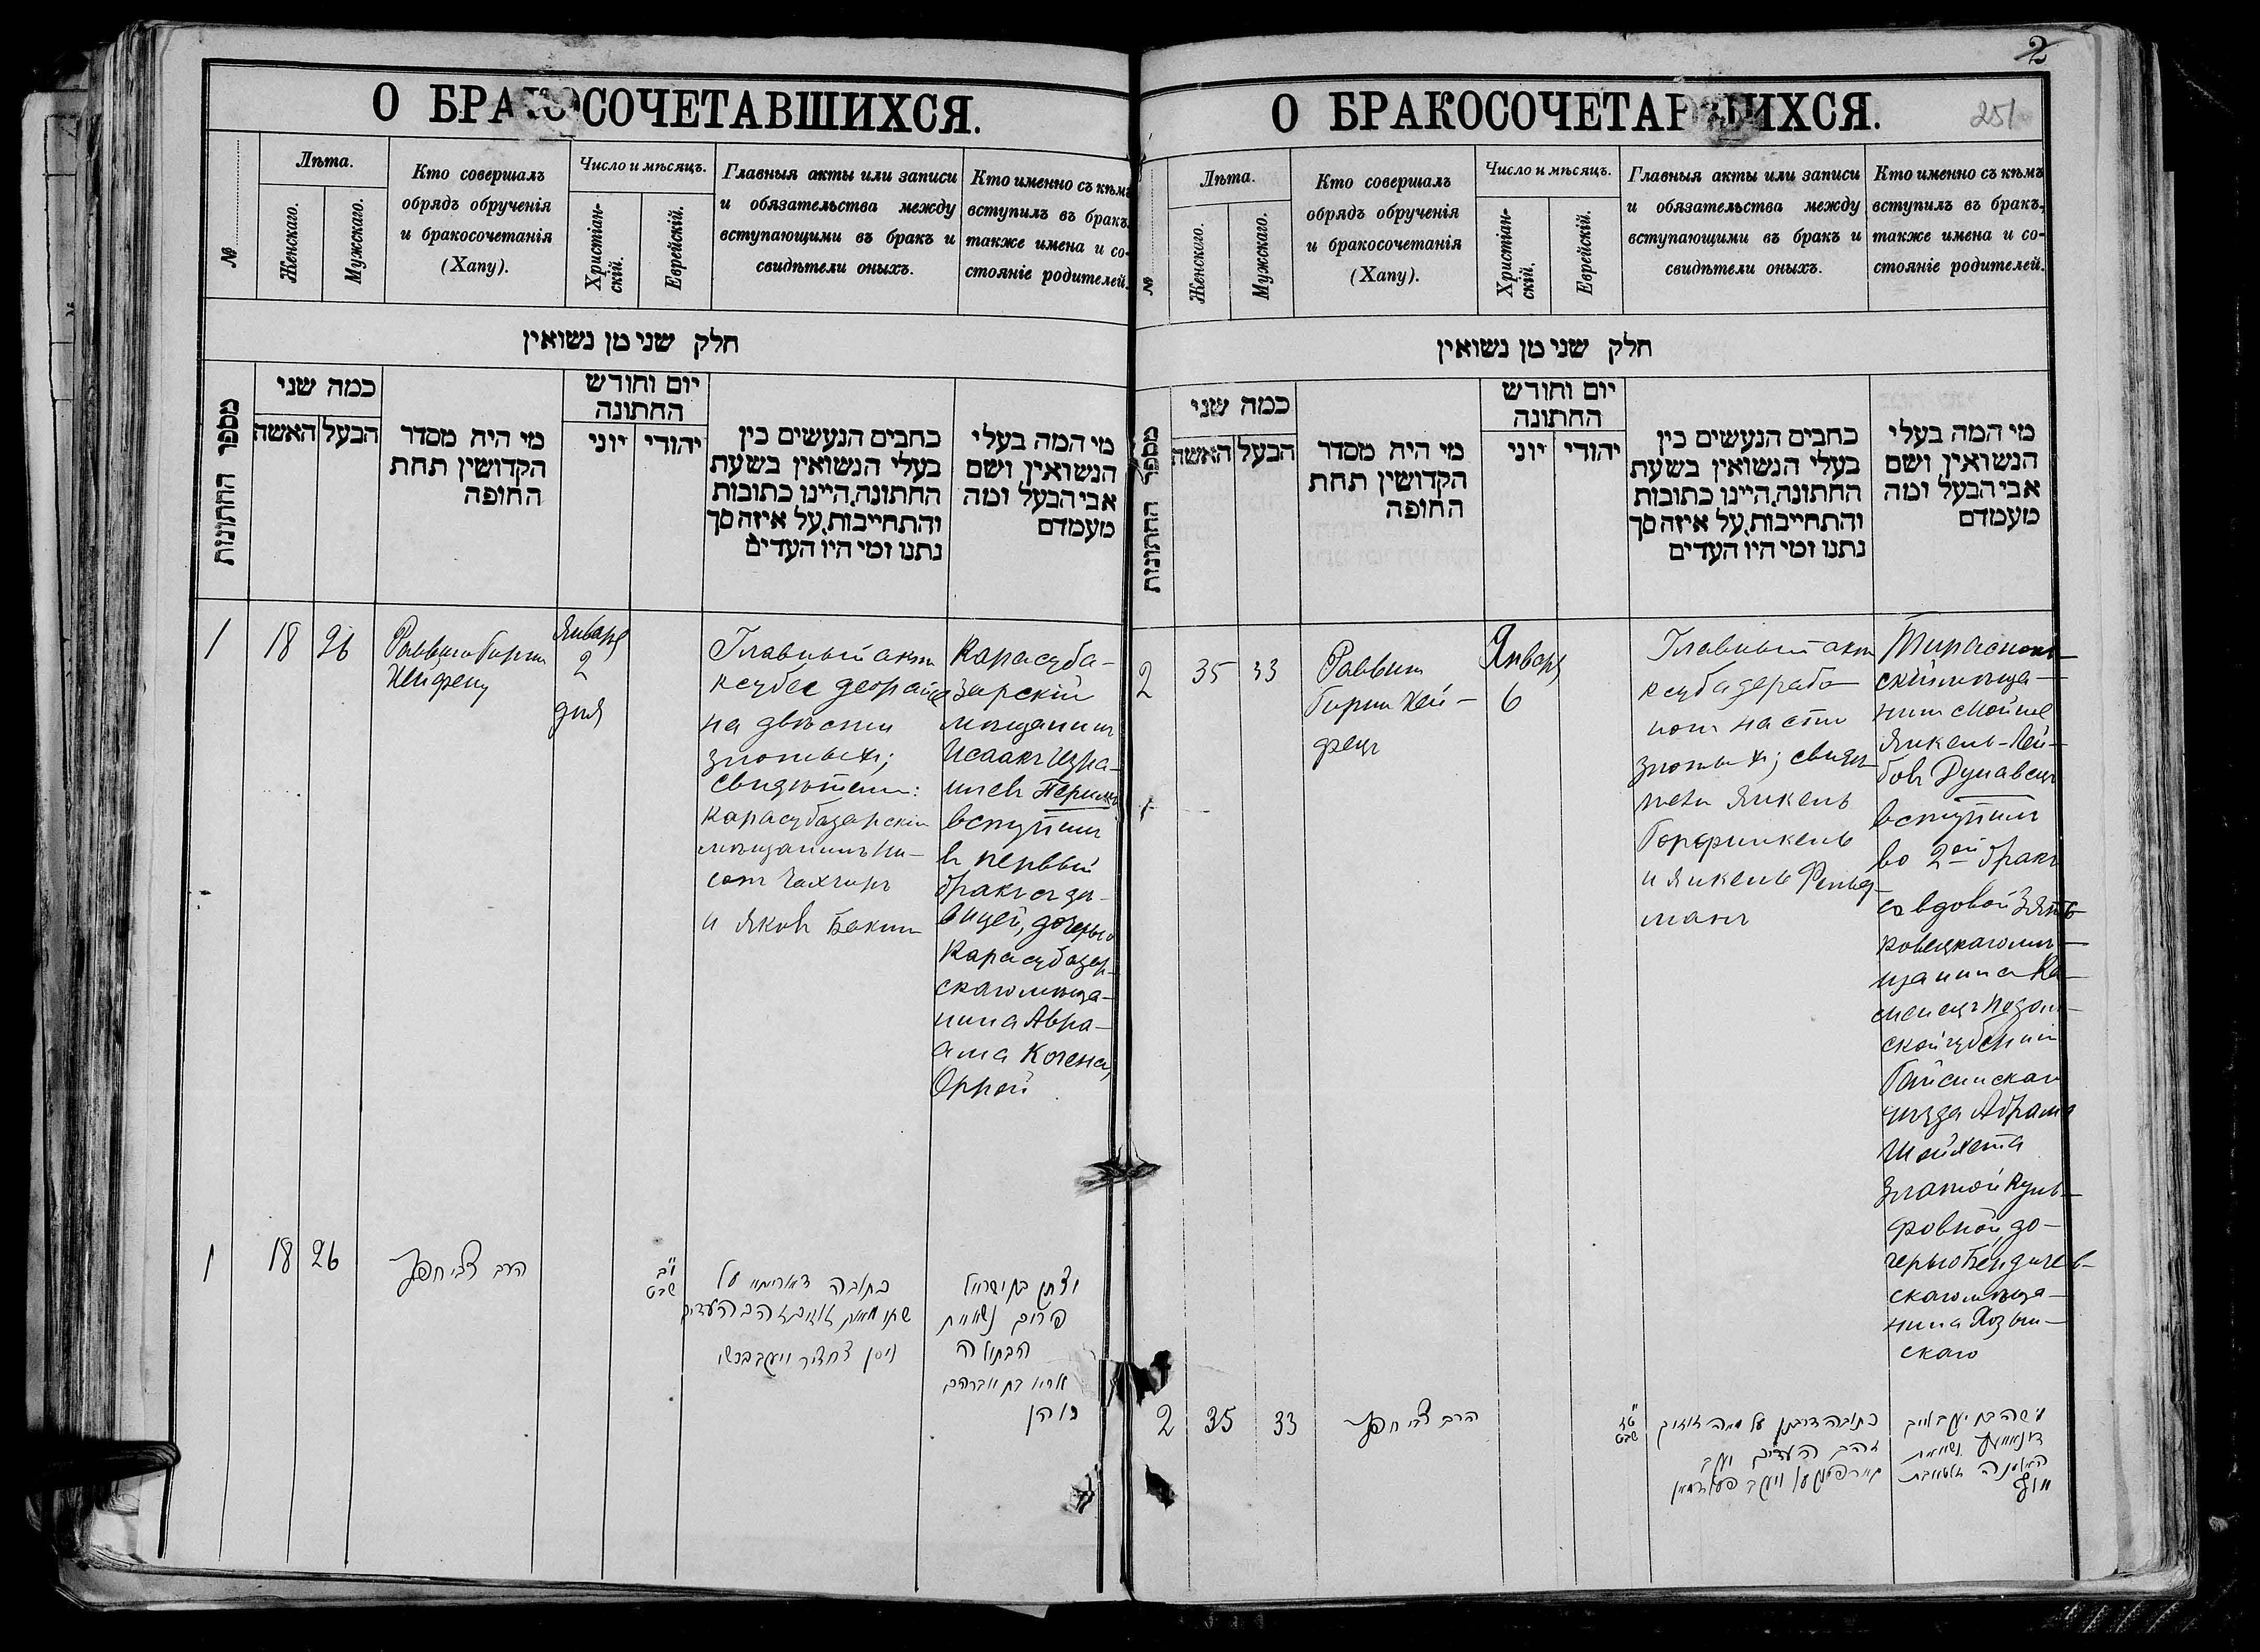 О БРАКОСОЧЕТАВШИХСЯ.
№
Лѣта.
Женскаго.
Мужскаго.
Кто совершалъ
обрядъ обрученія
и бракосочетанія
(Хапу).
Число и мѣсяцъ.
Христіан-
скій.
Еврейскій.
Главныя акты или записи
и обязательства между
вступающими въ бракъ и
свидѣтели оныхъ.
Кто именно съ кѣмъ
вступилъ въ бракъ,
также имена и со-
стояніе родителей.
חלק שני מן נשואין
מספר החתונות
כמה שני
האשה
הבעל
מי היה מסדר
הקדושין תחת
החופה
יום וחודש
החתונה
יוני
יהודי
כתבים הנעשים בין
בעלי הנשואין בשעת
החתונה, היינו כתובות
והתחייבות, על איזה סך
נתנו ומי היו העדים
מי המה בעלי
הנשואין ושם
אבי הבעל ומה
מעמדם
1
18
26
Январь
2
дня
Главный актъ
на двѣсти
злотыхъ;
свидѣтели:
Карасубазарскій
мѣщанинъ Ни-
и Яковъ Бакши
Карасуба-
зарскій
мѣщанинъ
Исаакъ Изра-
вступилъ
въ первый
бракъ съ дѣ-
вицей, дочерью
Карасубазар-
скаго мѣща-
нина Авра-
ама Когена,
1
18
26
הרב צבי חפץ
י"ב
שבט
כתובה דאורייתא על
יצחק בן ישראל
פורים נשא את
הבתולה
בת אברהם
כוהן
2
251
О БРАКОСОЧЕТАВШИХСЯ.
№
Лѣта.
Женскаго.
Мужскаго.
Кто совершалъ
обрядъ обрученія
и бракосочетанія
(Хапу).
Число и мѣсяцъ.
Христіан-
скій.
Еврейскій.
Главныя акты или записи
и обязательства между
вступающими въ бракъ и
свидѣтели оныхъ.
Кто именно съ кѣмъ
вступилъ въ бракъ,
также имена и со-
стояніе родителей.
חלק שני מן נשואין
מספר החתונות
כמה שני
האשה
הבעל
מי היה מסדר
הקדושין תחת
החופה
יום וחודש
החתונה
יוני
יהודי
כתבים הנעשים בין
בעלי הנשואין בשעת
החתונה, היינו כתובות
והתחייבות, על איזה סך
נתנו ומי היו העדים
מי המה בעלי
הנשואין ושם
אבי הבעל ומה
מעמדם
2
35
33
Раввинъ
Гирш Хей-
фецъ
Январь
6
Главный актъ
на сто
злотыхъ; свидѣ-
тели Янкель
и Янкель Фельд-
манъ
Тирасполь-
скій мѣща-
нинъ Мойше
Янкель-Лей-
бовъ Дунаевецъ
вступилъ
во 2ой бракъ
со вдовой Зять-
ковецкаго мѣ-
щанина Ка-
менецъ Подоль-
ской губерніи
Гайсинскаго
уѣзда Абрама
Шойхета
Златой Куль-
фовной, до-
черью Бендичев-
скаго мѣща-
нина
скаго
2
35
33
הרב צבי חפץ
ט"ז
שבט
כתובה דרבנן על מאה זהובים
זהב העדים יעקב
משה בן יעקב לייב
דונאוועץ נשא את
האלמנה